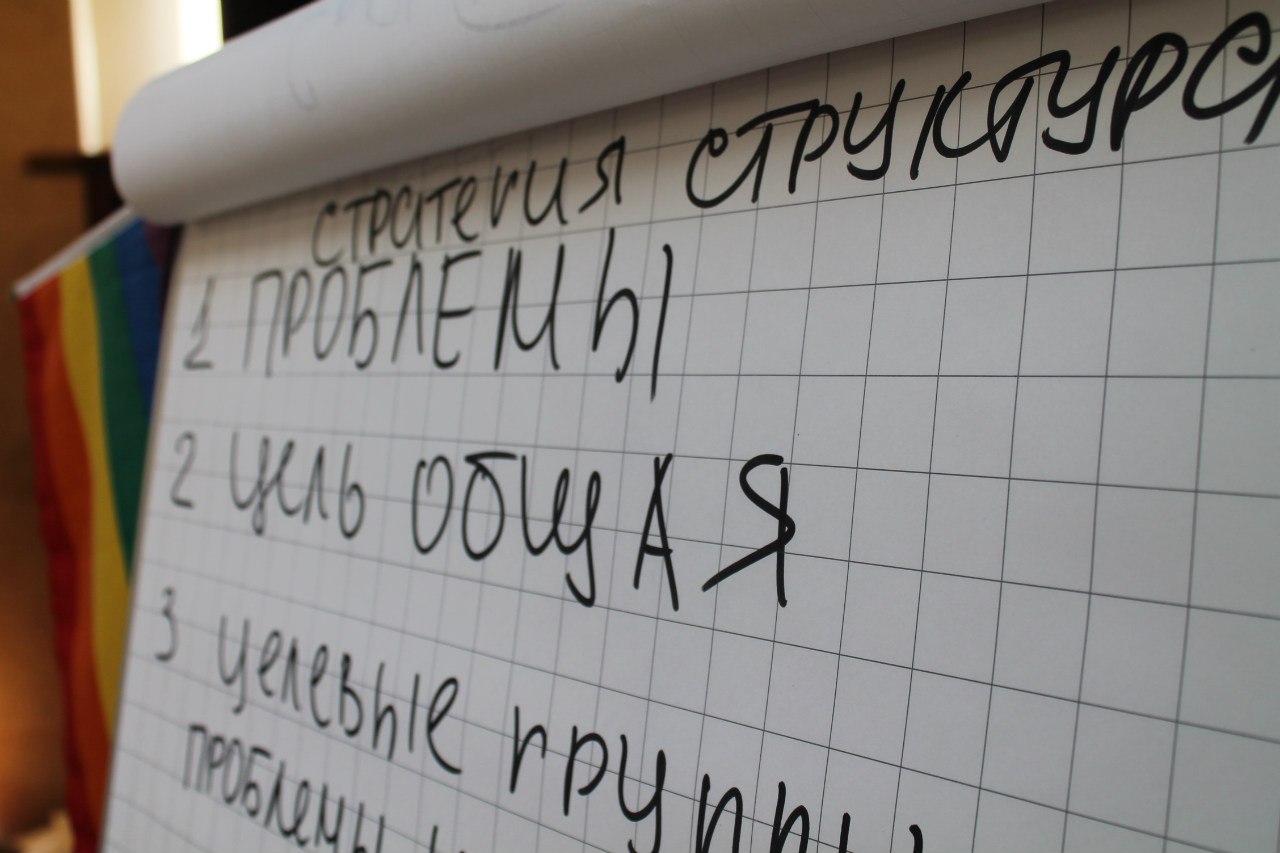 стратегия структура
1 ПРОБЛЕМЫ
2 цель общАЯ
3 целевые группы
проблемы